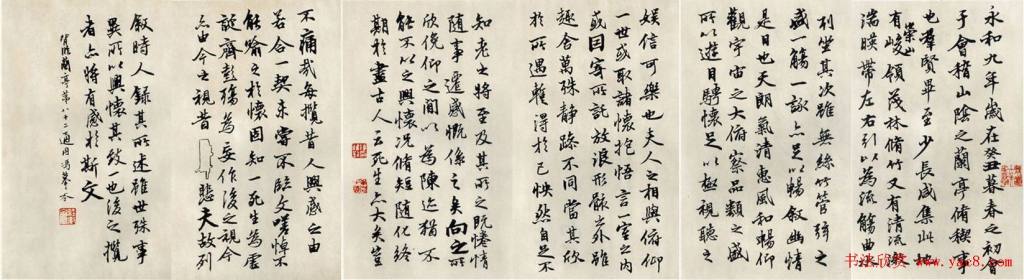 永和九年歲在癸丑暮春之初會
于會稽山陰之蘭亭脩稧事
也羣賢畢至少長咸集此地
有崇山峻領茂林脩竹又有清流激
湍暎帶左右引以為流觴曲水
列坐其次雖無絲竹管弦之
盛一觴一詠亦足以暢敘幽情
是日也天朗氣清惠風和暢仰
觀宇宙之大俯察品類之盛
所以遊目騁懷足以極視聽之
娛信可樂也夫人之相與俯仰
一世或取諸懷抱悟言一室之內
或因寄所託放浪形骸之外雖
趣舍萬殊靜躁不同當其欣
於所遇暫得於己怏然自足不
知老之將至及其所之既惓情
隨事遷感慨係之矣向之所
欣俛仰之間以為陳迹猶不
能不以之興懷況脩短隨化終
期於盡古人云死生亦大矣豈
不痛哉每攬昔人興感之由
若合一契未嘗不臨文嗟悼不
能喻之於懷固知一死生為虛
誕齊彭殤為妄作後之視今
亦由今之視昔悲夫故列
敘時人錄其所述雖世殊事
異所以興懷其致一也後之攬
者亦將有感於斯文
蘭亭第八十三通
书法欣赏
www.yac8.com